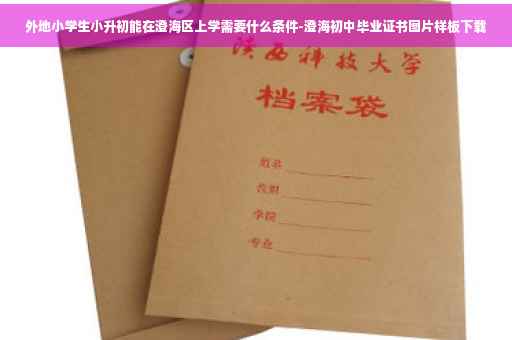 外地小学生小升初能在澄海区上学需要什么条件-澄海初中毕业证书图片样板下载
陕西科技大学
档案袋
姓名
学院
专业